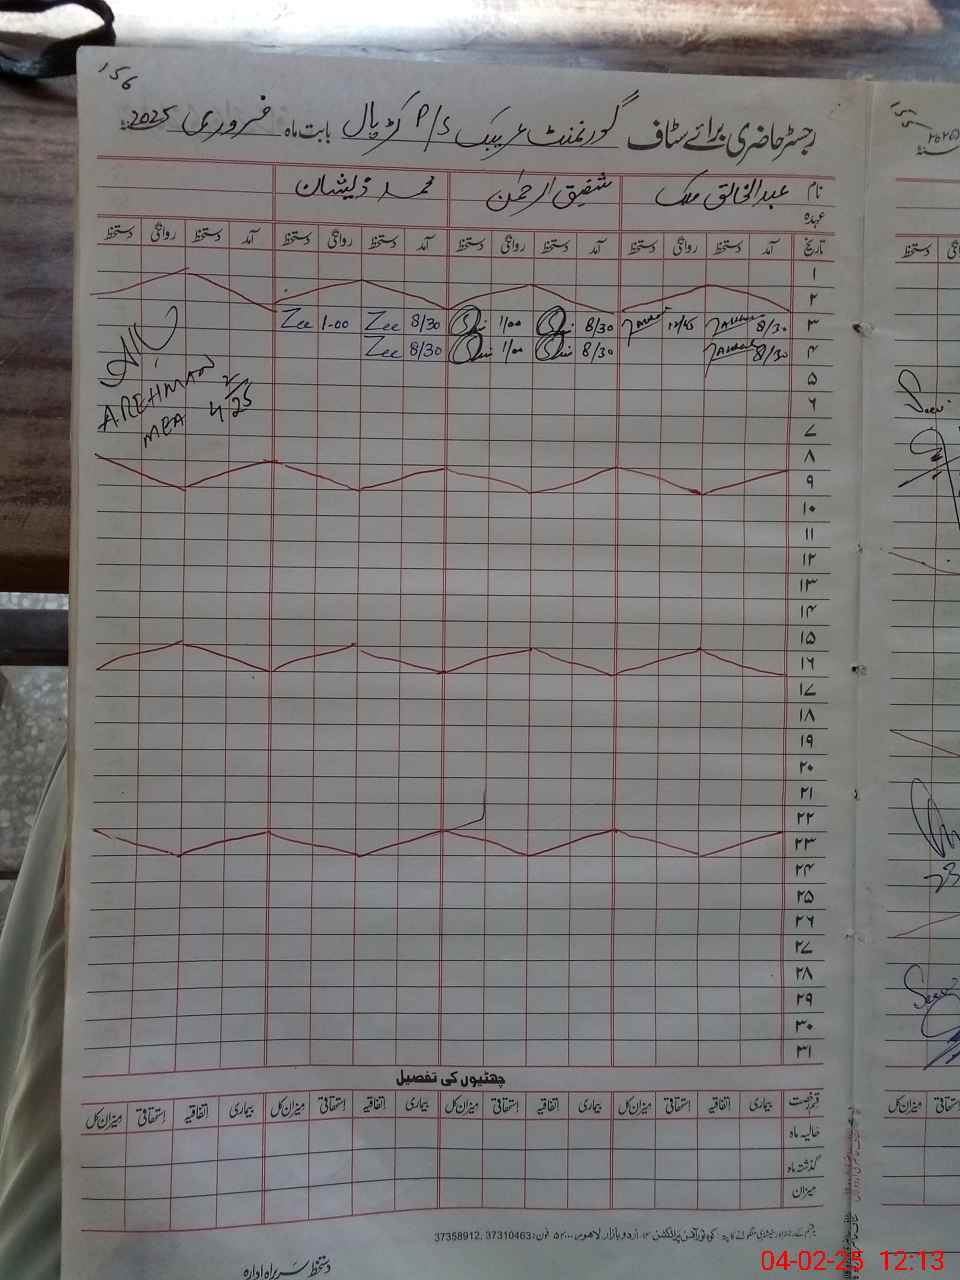 156
رجسٹر حاضری برائے سٹاف گورنمنٹ P/S کڑپال بابت ماہ فروری 2025
نام عبدالخالق ملک شفیق الرحمٰن محمد ذیشان
عہدہ
تاریخ آمد دستخط روانگی دستخط آمد دستخط روانگی دستخط آمد دستخط روانگی دستخط آمد دستخط روانگی دستخط
۱
۲
۳ 8/30 12/45 8/30 1/00 8/30 Zee 1-00 Zee
۴ 8/30 8/30 1/00 8/30 Zee
۵
۶
۷
۸
۹
۱۰
۱۱
۱۲
۱۳
۱۴
۱۵
۱۶
۱۷
۱۸
۱۹
۲۰
۲۱
۲۲
۲۳
۲۴
۲۵
۲۶
۲۷
۲۸
۲۹
۳۰
۳۱
A REHMAN
MEA 4/2/25
چھٹیوں کی تفصیل
قسم رخصت بیماری اتفاقیہ استحقاقی میزان کل بیماری اتفاقیہ استحقاقی میزان کل بیماری اتفاقیہ استحقاقی میزان کل بیماری اتفاقیہ استحقاقی میزان کل
حالیہ ماہ
گذشتہ ماہ
میزان
اردو بازار لاہور فون: 37310463, 37358912
دستخط سربراہ ادارہ
155
دستخط
Seen
23
Seen
میزان کل
04-02-25 12:13